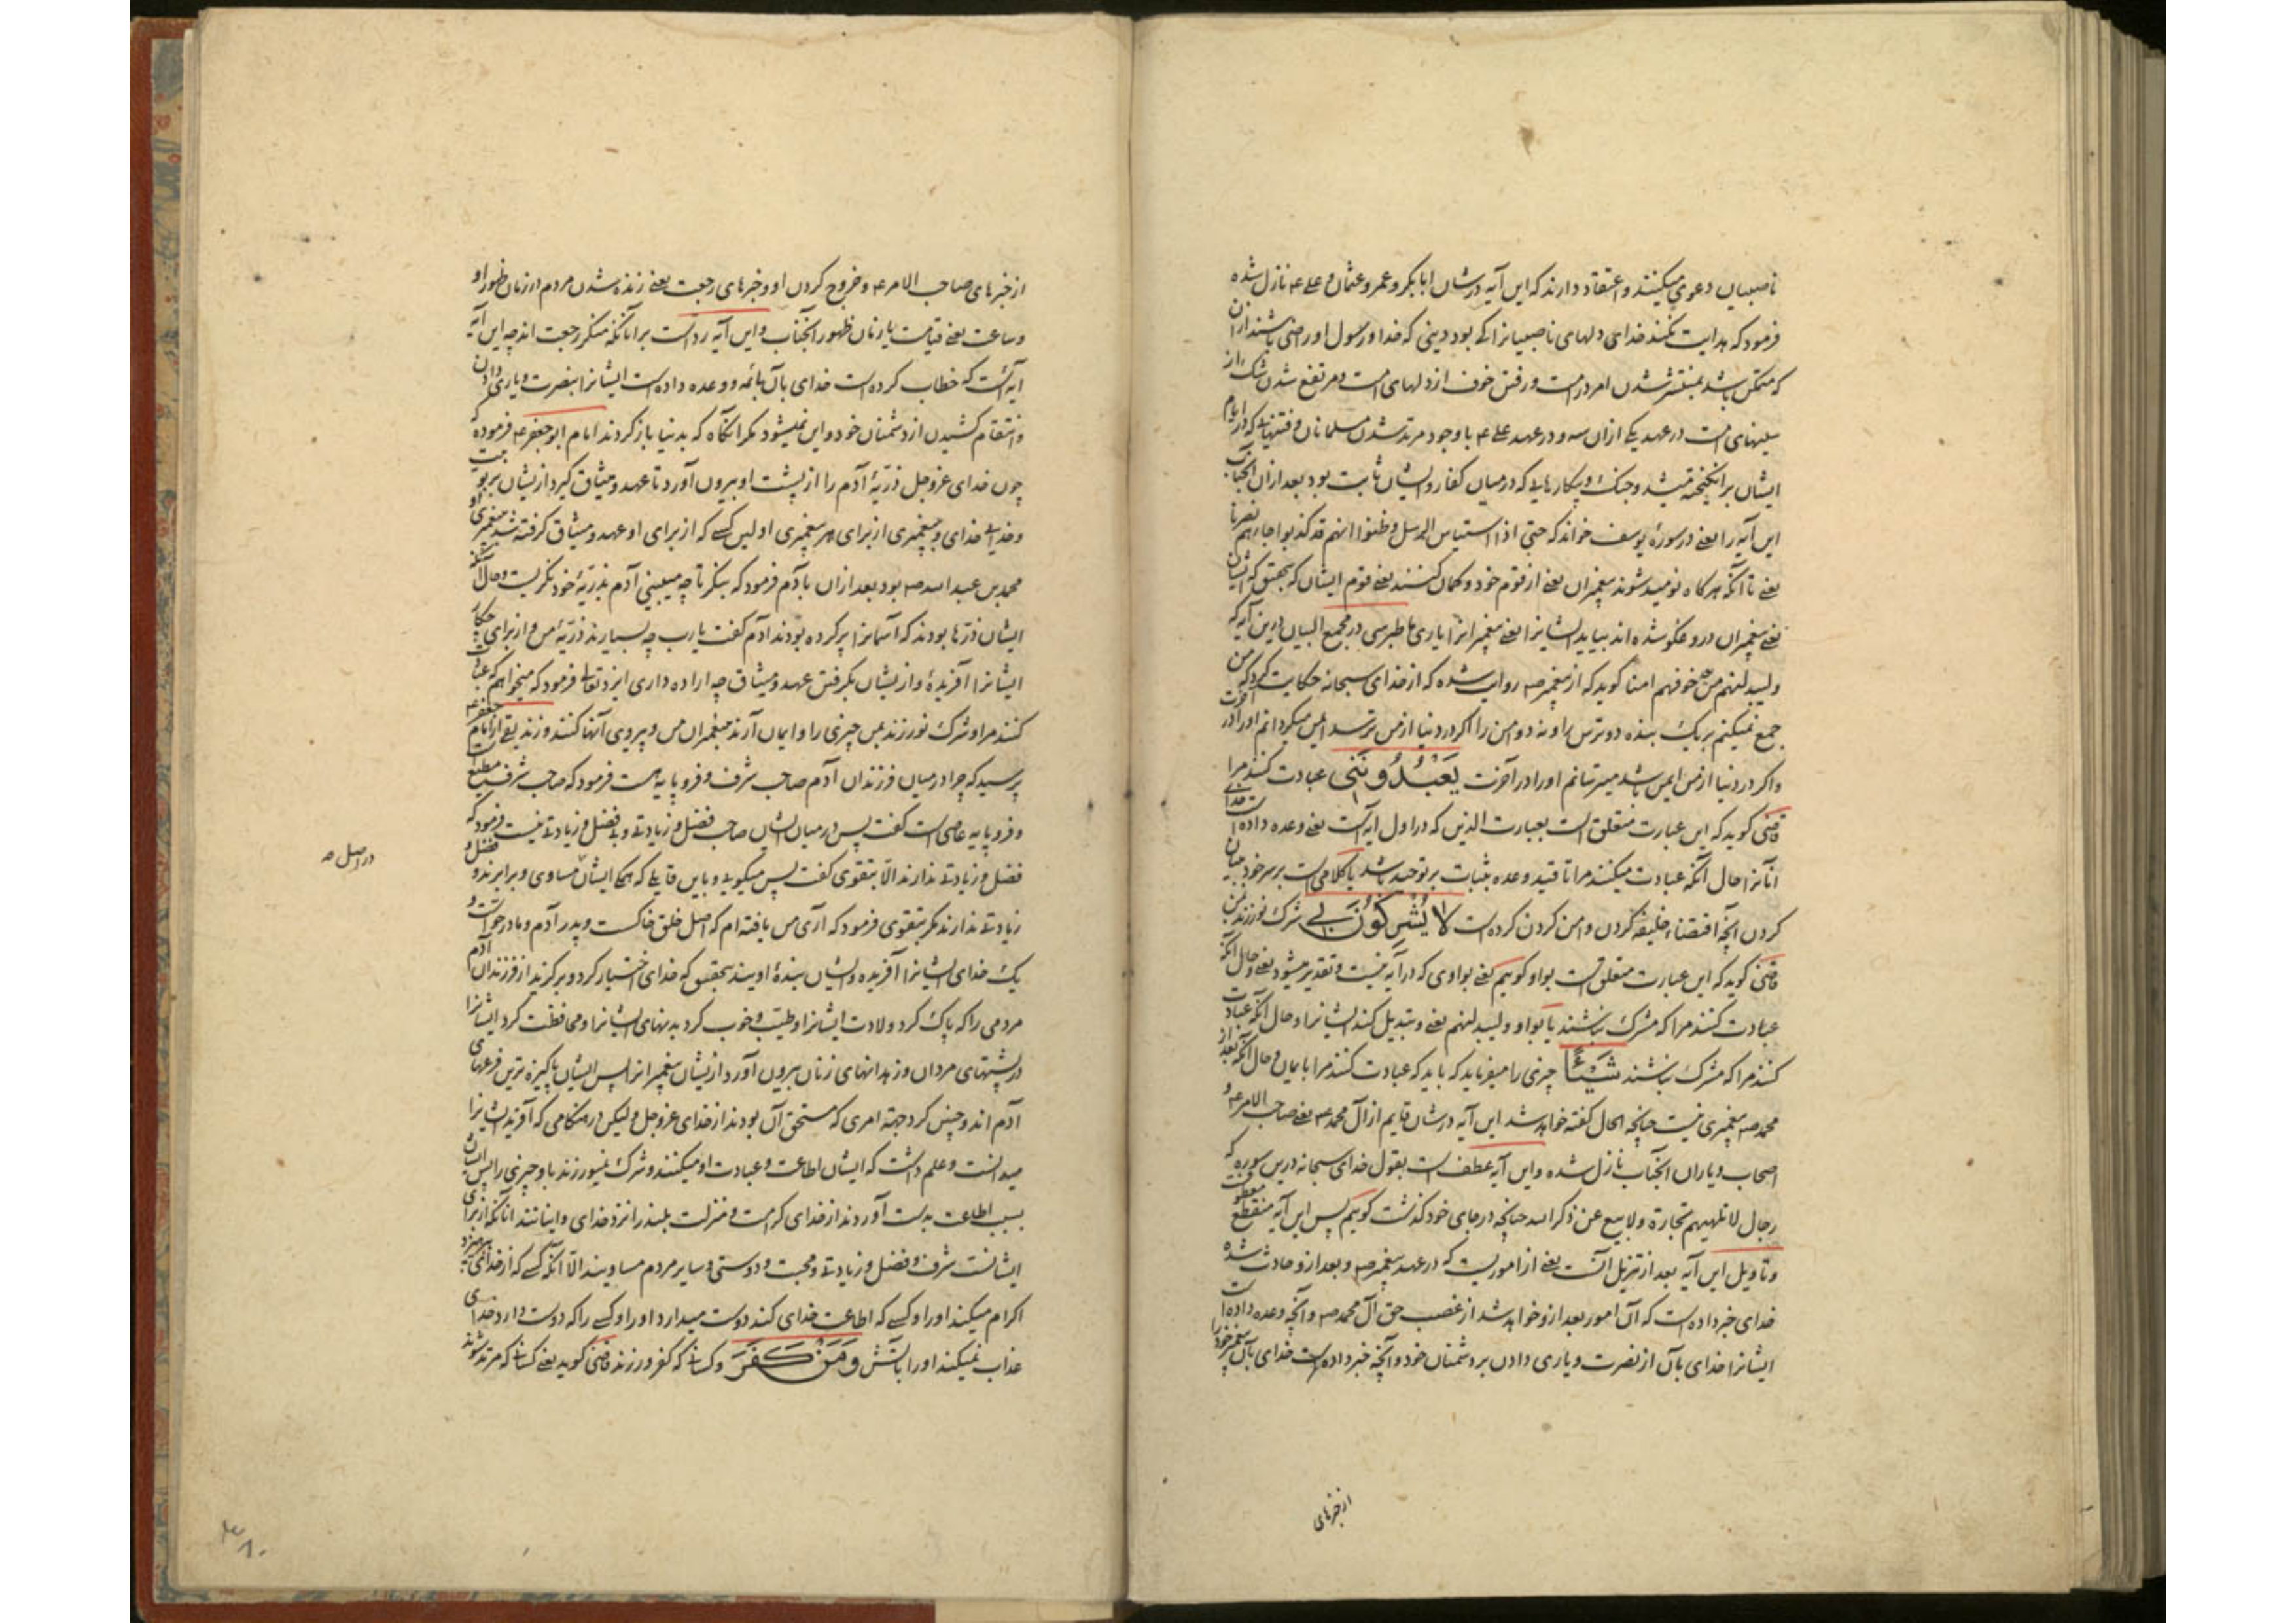 ناصبیان دعوی میکنند و اعتقاد دارند که این آیه در شان ابابکر و عمر و عثمان و علی ع نازل شده
فرمود که هدایت نکند خدای دلهای ناصبیانرا کی بود دینی که خدا و رسول او راضی باشند ازان
که متمکن باشد بمنتشر شدن امر در امت و رفتن خوف از دلهای امت و مرتفع شدن شک از
سینهای امت در عهد یکی ازان سه و در عهد علی ع با وجود مرتد شدن مسلمانان و فتنهایی که در ایام
ایشان برانگیخته میشد و جنک و پیکارهایی که در میان کفار و ایشان ثابت بود بعد ازان آنجناب
این آیه را یعنی در سورهٔ یوسف خواند که حتی اذا استیاس الرسل و ظنوا انهم قد کذبوا جاءهم نصرنا
یعنی تا آنکه هرکاه نومید شوند پیغمبران یعنی از قوم خود و کمان کنند یعنی قوم ایشان که بتحقیق که ایشان
یعنی پیغمبران دروغکو شده اند بیاید ایشانرا یعنی پیغمبرانرا یاری ما طبرسی در مجمع البیان درین آیه که
ولیبدلنهم من بعد خوفهم امنا کوید که از پیغمبر ص روایت شده که از خدای سبحانه حکایت کرد که من
جمع نمیکنم بر یک بنده دو ترس را و نه دو امن را اکر در دنیا از من ترسد ایمن میکردانم او را در آخرت
و اکر در دنیا از من ایمن باشد میترسانم او را در آخرت یَعْبُدُونَنِی عبادت کنند مرا
قاضی کوید که این عبارت متعلق است بعبارت الذین که در اول آیه است یعنی وعده داده است خدای
آنانرا حال آنکه عبادت میکنند مرا تا قید وعده بثبات بر توحید باشد یا کلامی است بر سر خود بیان
کردن آنچه اقتضاء خلیفه کردن و امن کردن کرده است لا یُشْرِکُونَ بِی شرک نورزند بمن
قاضی کوید که این عبارت متعلق است بواو کوییم یعنی بواوی که در آیه نیست و تقدیر میشود یعنی و حال آنکه
عبادت کنند مرا که مشرک نباشند یا بواو ولیبدلنهم یعنی و تبدیل کند ایشانرا و حال آنکه عبادت
کنند مرا که مشرک نباشند شَیْئًا چیزی را میفرماید که باید که عبادت کنند مرا بایمان و حال آنکه بعد از
محمد ص پیغمبری نیست چنانچه الحال کفته خواهد شد این آیه در شان قایم از آل محمد ع یعنی صاحب الامر ع و
اصحاب و یاران آنجناب نازل شده و این آیه عطف است بقول خدای سبحانه درین سوره که
رجال لا تلهیهم تجارة ولا بیع عن ذکر الله چنانچه در جای خود کذشت کوییم پس این آیه منقطع معطوف
و تاویل این آیه بعد از تنزیل آنست یعنی از اموریست که در عهد پیغمبر ص و بعد ازو حادث شده
خدای خبر داده است که آن امور بعد ازو خواهد شد از غصب حق آل محمد ص و آنچه وعده داده است
ایشانرا خدای بآن از نصرت و یاری دادن بر دشمنان خود و آنچه خبر داده است خدای بآن پیغمبر خود را
از خبرهای
از خبرهای صاحب الامر ع و خروج کردن او و خبرهای رجعت یعنی زنده شدن مردم در زمان ظهور او
و ساعت یعنی قیامت یا زمان ظهور آنجناب و این آیه رد است بر آنانکه منکر رجعت اند چه این آیه
آیه است که خطاب کرده است خدای بآن بائمه و وعده داده است ایشانرا بنصرت و یاری دادن
و انتقام کشیدن از دشمنان خود و این نمیشود مکر آنکاه که بدنیا باز کردند امام ابو جعفر ع فرموده که
چون خدای عزوجل ذریهٔ آدم را از پشت او بیرون آورد تا عهد و میثاق کیرد ازیشان بربوبیت
و خدایی خدای و پیغمبری از برای هر پیغمبری اولین کسی که از برای او عهد و میثاق کرفته شد پیغمبری او
محمد بن عبد الله ص بود بعد ازان بآدم فرمود که بنکر تا چه میبینی آدم بذریهٔ خود نکریست و حال آنکه
ایشان ذرها بودند که آسمانرا پر کرده بودند آدم کفت یا رب چه بسیارند ذریهٔ من و از برای چکار
ایشانرا آفریدهٔ و ازیشان بکرفتن عهد و میثاق چه اراده داری ایزد تعالی فرمود که میخواهم که عبادت
کنند مرا و شرک نورزند بمن چیزی را و ایمان آرند بپیغمبران من و پیروی آنها کنند و زندیقی از امام جعفر ع
پرسید که چرا در میان فرزندان آدم صاحب شرف و فروپایه هست فرمود که صاحب شرف مطیع
و فروپایه عاصی است کفت پس در میان ایشان صاحب فضل و زیادتی و بی فضل و زیادتی نیست فرمود که
فضل و زیادتی ندارند الا بتقوی کفت پس میکویی و باین قایلی که همکی ایشان مساوی و برابرند و فضل و
در اصل ص
زیادتی ندارند مکر بتقوی فرمود که آری من یافته ام که اصل خلق خاکست و پدر آدم و مادر حواست و
یک خدای ایشانرا آفریده و ایشان بندهٔ اویند بتحقیق که خدای اختیار کرد و برکزید از فرزندان آدم
مردمی را که پاک کرد ولادت ایشانرا و طیب و خوب کرد بدنهای ایشانرا و محافظت کرد ایشانرا
در پشتهای مردان و زهدانهای زنان بیرون آورد ازیشان پیغمبرانرا پس ایشان پاکیزه ترین فرعهای
آدم اند و چنین کرد جهة امری که مستحق آن بودند از خدای عزوجل ولیکن در هنکامی که آفرید ایشانرا
میدانست و علم داشت که ایشان اطاعت و عبادت او میکنند و شرک نمیورزند باو چیزی را پس ایشان
بسبب اطاعت بدست آوردند از خدای کرامت و منزلت بلند را نزد خدای و اینانند آنانکه از برای
ایشانست شرف و فضل و زیادتی و محبت و دوستی و سایر مردم مساویند الا آنکه کسی که از خدای بپرهیزد
اکرام میکند او را و کسی که اطاعت خدای کند دوست میدارد او را و کسی را که دوست دارد خدای
عذاب نمیکند او را بآتش وَمَنْ کَفَرَ و کسانی که کفر ورزند قاضی کوید یعنی کسانی که مرتد شوند
۳۸۰